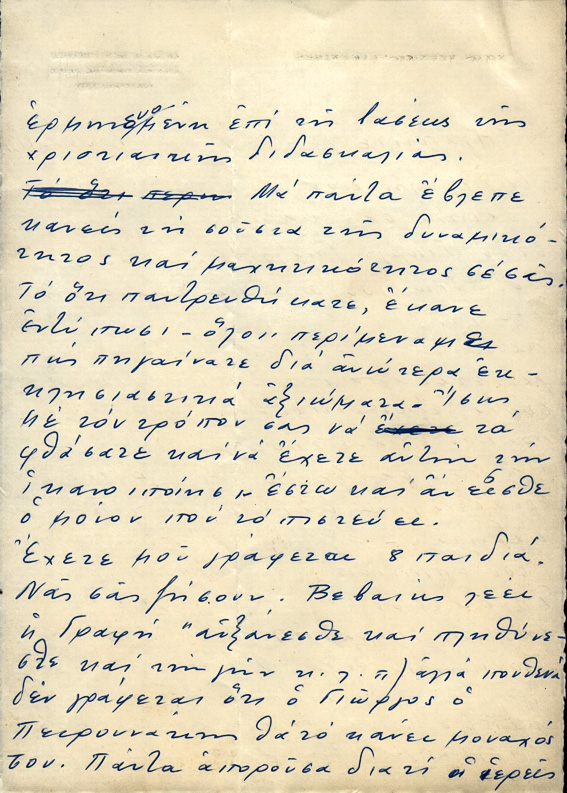 ἑρμηνευομένη ἐπί τῆ βάσεως τῆς
χριστιανικῆς διδασκαλίας.
Τό ὅτι περι Μά πάντα ἔβλεπε
κανείς τή σούστα τῆς δυναμικό-
τητος καί μαχητικότητος σέ σᾶς.
Τό ὅτι παντρευθήκατε, ἔκανε
ἐντύπωσι - ὅλοι περίμεναμε
πώς πηγαίνατε διά ἀνώτερα ἐκ-
κλησιαστικά ἀξιώματα. Ἴσως
μέ τόν τρόπον σας νά ἔχετε τά
φθάσατε καί νά ἔχετε αὐτήν τήν
ἱκανοποίησι, ἔστω καί ἄν εἶσθε
ὁ μόνον πού τό πιστεύει.
Ἔχετε μοῦ γράφεται 8 παιδιά.
Νᾶς σᾶς ζήσουν. Βεβαίως λέει
ἡ Γραφή "αὐξάνεσθε καί πληθύνε-
σθε καί τήν γῆν κ.λ.π) ἀλλά πουθενά
δέν γράφεται ὅτι ὁ Γιῶργος ὁ
Πειρουνάκης θά τό κάνει μοναχός
του. Πάντα ἀποροῦσα διατί οἱ ἱερεῖς